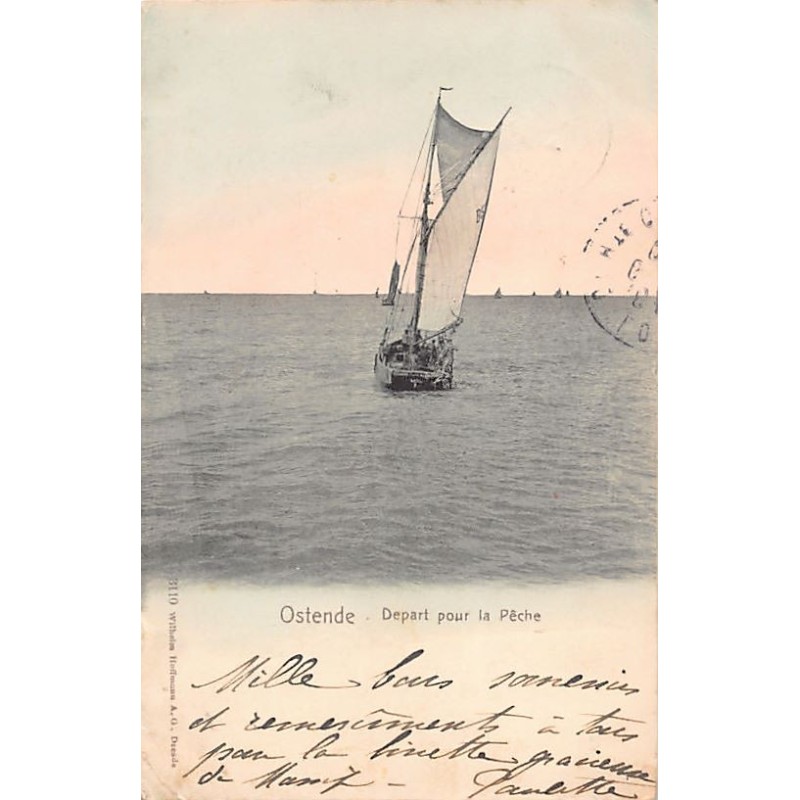 Ostende . Depart pour la Pêche
Mille bons souvenirs
et remerciments à tous
pour la binette gracieuse
de
Paulette
3110 Wilhelm Hoffmann A. G., Dresde